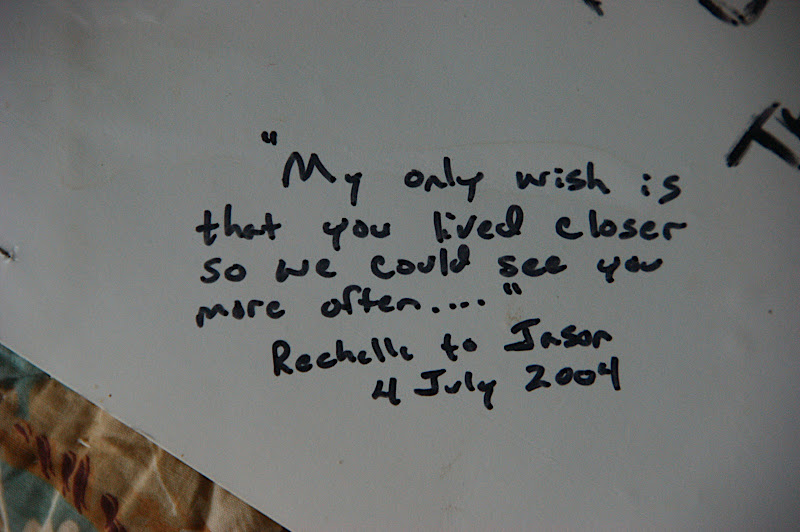 "My only wish is
that you lived closer
so we could see you
more often...."
Rechelle to Jason
4 July 2004